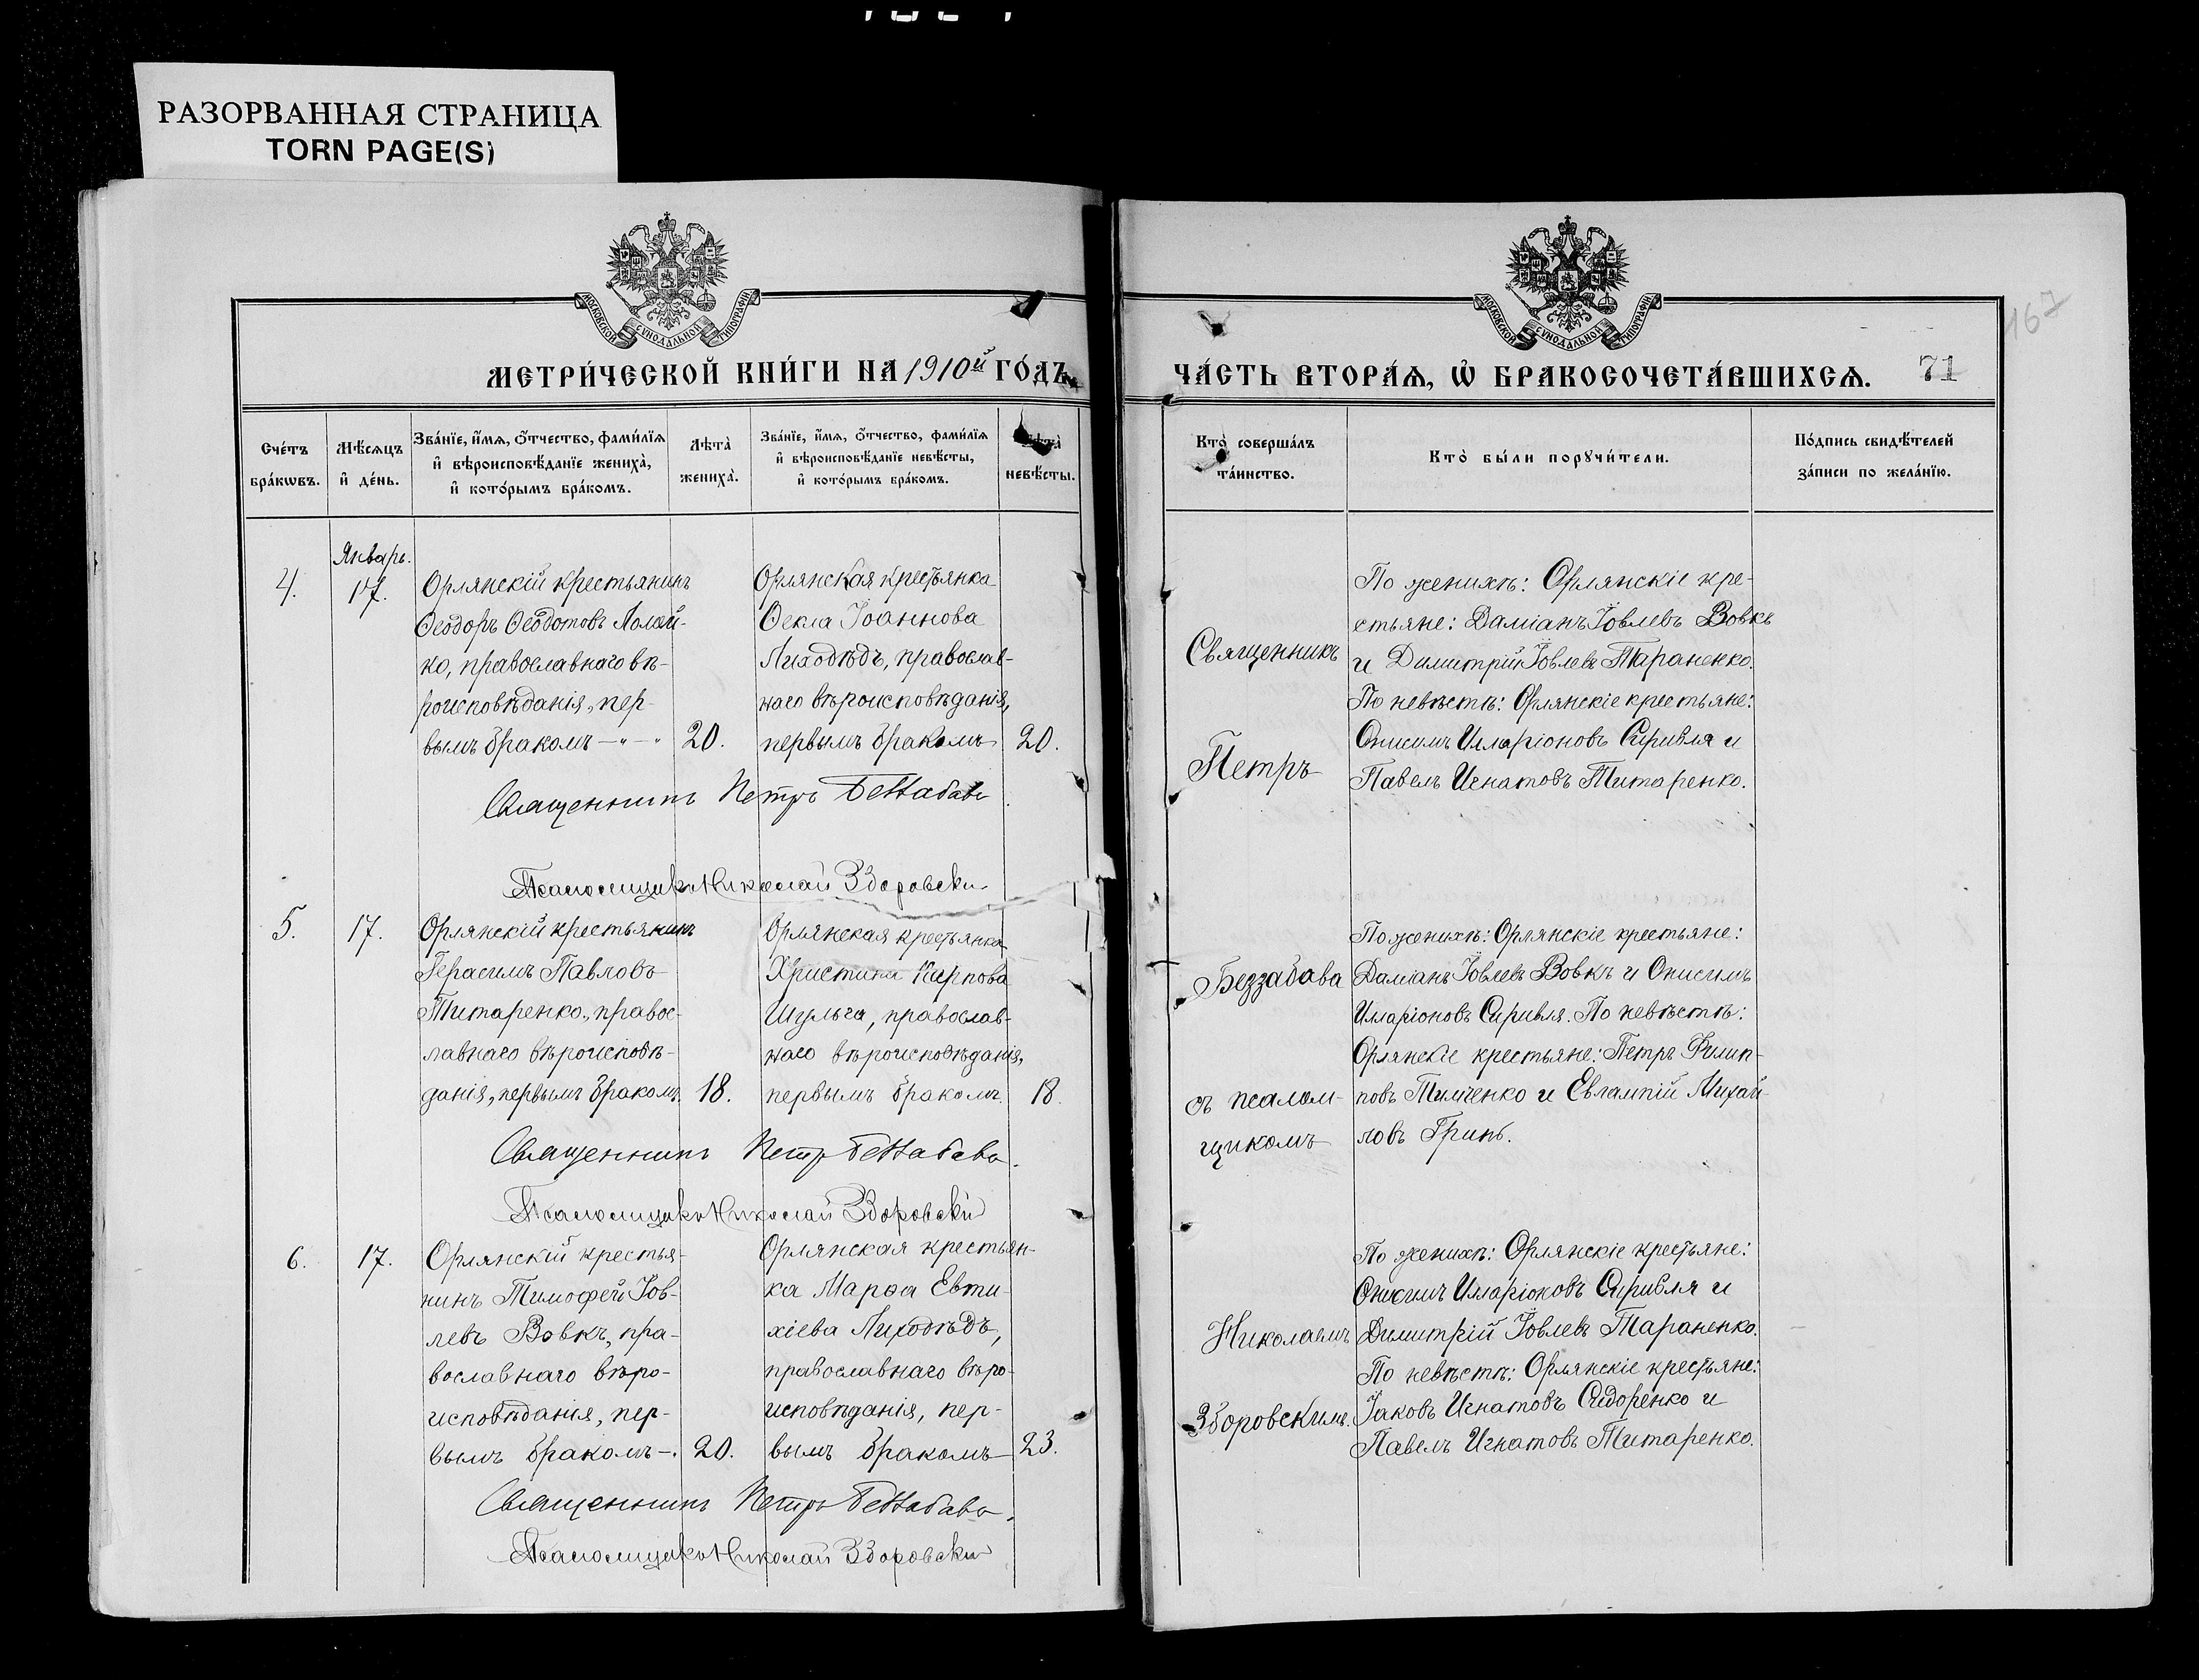 РАЗОРВАННАЯ СТРАНИЦА
TORN PAGE(S)
МОСКОВСКОЙ СѴНОДАЛЬНОЙ ТИПОГРАФІИ
МЕТРИ́ЧЕСКОЙ КНИ́ГИ НА 1910й ГО́ДЪ,
Сче́тъ бра́кѡвъ.
Мѣ́сяцъ и҆ де́нь.
Зва́нїе, и҆́мѧ, ѻ҆́тчество, фами́лїѧ
и҆ вѣроисповѣ́данїе жениха̀,
и҆ кото́рымъ бра́комъ.
Лѣта̀ жениха̀.
Зва́нїе, и҆́мѧ, ѻ҆́тчество, фами́лїѧ
и҆ вѣроисповѣ́данїе невѣ́сты,
и҆ кото́рымъ бра́комъ.
Лѣта̀ невѣ́сты.
4.
Январь.
17.
Орлянскій крестьянинъ
Ѳеодоръ Ѳеодотовъ Лолай-
ко, православнаго вѣ-
роисповѣданія, пер-
вымъ бракомъ —"—"
20.
Орлянская крестьянка
Ѳекла Іоаннова
Лиходѣдъ, православ-
наго вѣроисповѣданія,
первымъ бракомъ
20.
Священникъ Петръ Беззабава
Псаломщикъ Николай Здоровскій
5.
17.
Орлянскій крестьянинъ
Герасимъ Павловъ
Титаренко, правос-
лавнаго вѣроисповѣ-
данія, первымъ бракомъ.
18.
Орлянская крестьянка
Христина Карпова
Шульга, православ-
наго вѣроисповѣданія,
первымъ бракомъ.
18.
Священникъ Петръ Беззабава.
Псаломщикъ Николай Здоровскій
6.
17.
Орлянскій крестья-
нинъ Тимофей Іов-
левъ Вовкъ, пра-
вославнаго вѣро-
исповѣданія, пер-
вымъ бракомъ —.
20.
Орлянская крестьян-
ка Марѳа Евти-
хіева Лиходѣдъ,
православнаго вѣро-
исповѣданія, пер-
вымъ бракомъ
23.
Священникъ Петръ Беззабава.
Псаломщикъ Николай Здоровскій
МОСКОВСКОЙ СѴНОДАЛЬНОЙ ТИПОГРАФІИ
167
ЧА́СТЬ ВТОРА́Ѧ, Ѡ҆ БРАКОСОЧЕТА́ВШИХСѦ.
71
Кто̀ соверша́лъ та́инство.
Кто̀ бы́ли порꙋчи́тели.
По́дпись свидѣ́телей
за́писи по жела́нїю.
Священникъ
Петръ
Беззабава
съ псалом-
щикомъ
Николаемъ
Здоровскимъ.
По женихѣ: Орлянскіе кре-
стьяне: Даміанъ Іовлевъ Вовкъ
и Димитрій Іовлевъ Тараненко.
По невѣстѣ: Орлянскіе крестьяне:
Онисимъ Илларіоновъ Скривля и
Павелъ Игнатовъ Титаренко.
По женихѣ: Орлянскіе крестьяне:
Даміанъ Іовлевъ Вовкъ и Онисимъ
Иларіоновъ Скривля. По невѣстѣ:
Орлянскіе крестьяне: Петръ Филип-
повъ Тимченко и Евлампій Михай-
ловъ Гринь.
По женихѣ: Орлянскіе крестьяне:
Онисимъ Иларіоновъ Скривля и
Димитрій Іовлевъ Тараненко.
По невѣстѣ: Орлянскіе крестьяне:
Іаковъ Игнатовъ Сидоренко и
Павелъ Игнатовъ Титаренко.